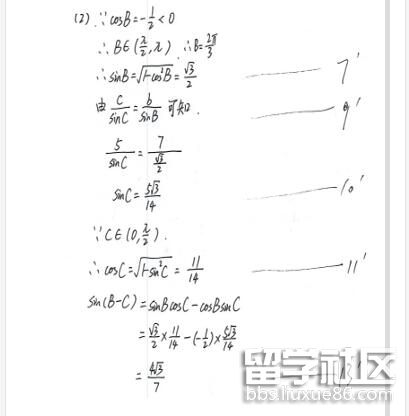 (2) ∵ cosB = -1/2 < 0
∴ B∈(π/2, π) ∴ B = 2π/3
∴ sinB = √(1-cos²B) = √3/2 —— 7'
由 c/sinC = b/sinB 可知 —— 9'
5/sinC = 7/(√3/2)
sinC = 5√3/14 —— 10'
∵ C∈(0, π/2).
∴ cosC = √(1-sin²C) = 11/14 —— 11'
sin(B-C) = sinBcosC - cosBsinC
= √3/2 × 11/14 - (-1/2) × 5√3/14
= 4√3/7
留学社区
bbs.liuxue86.com